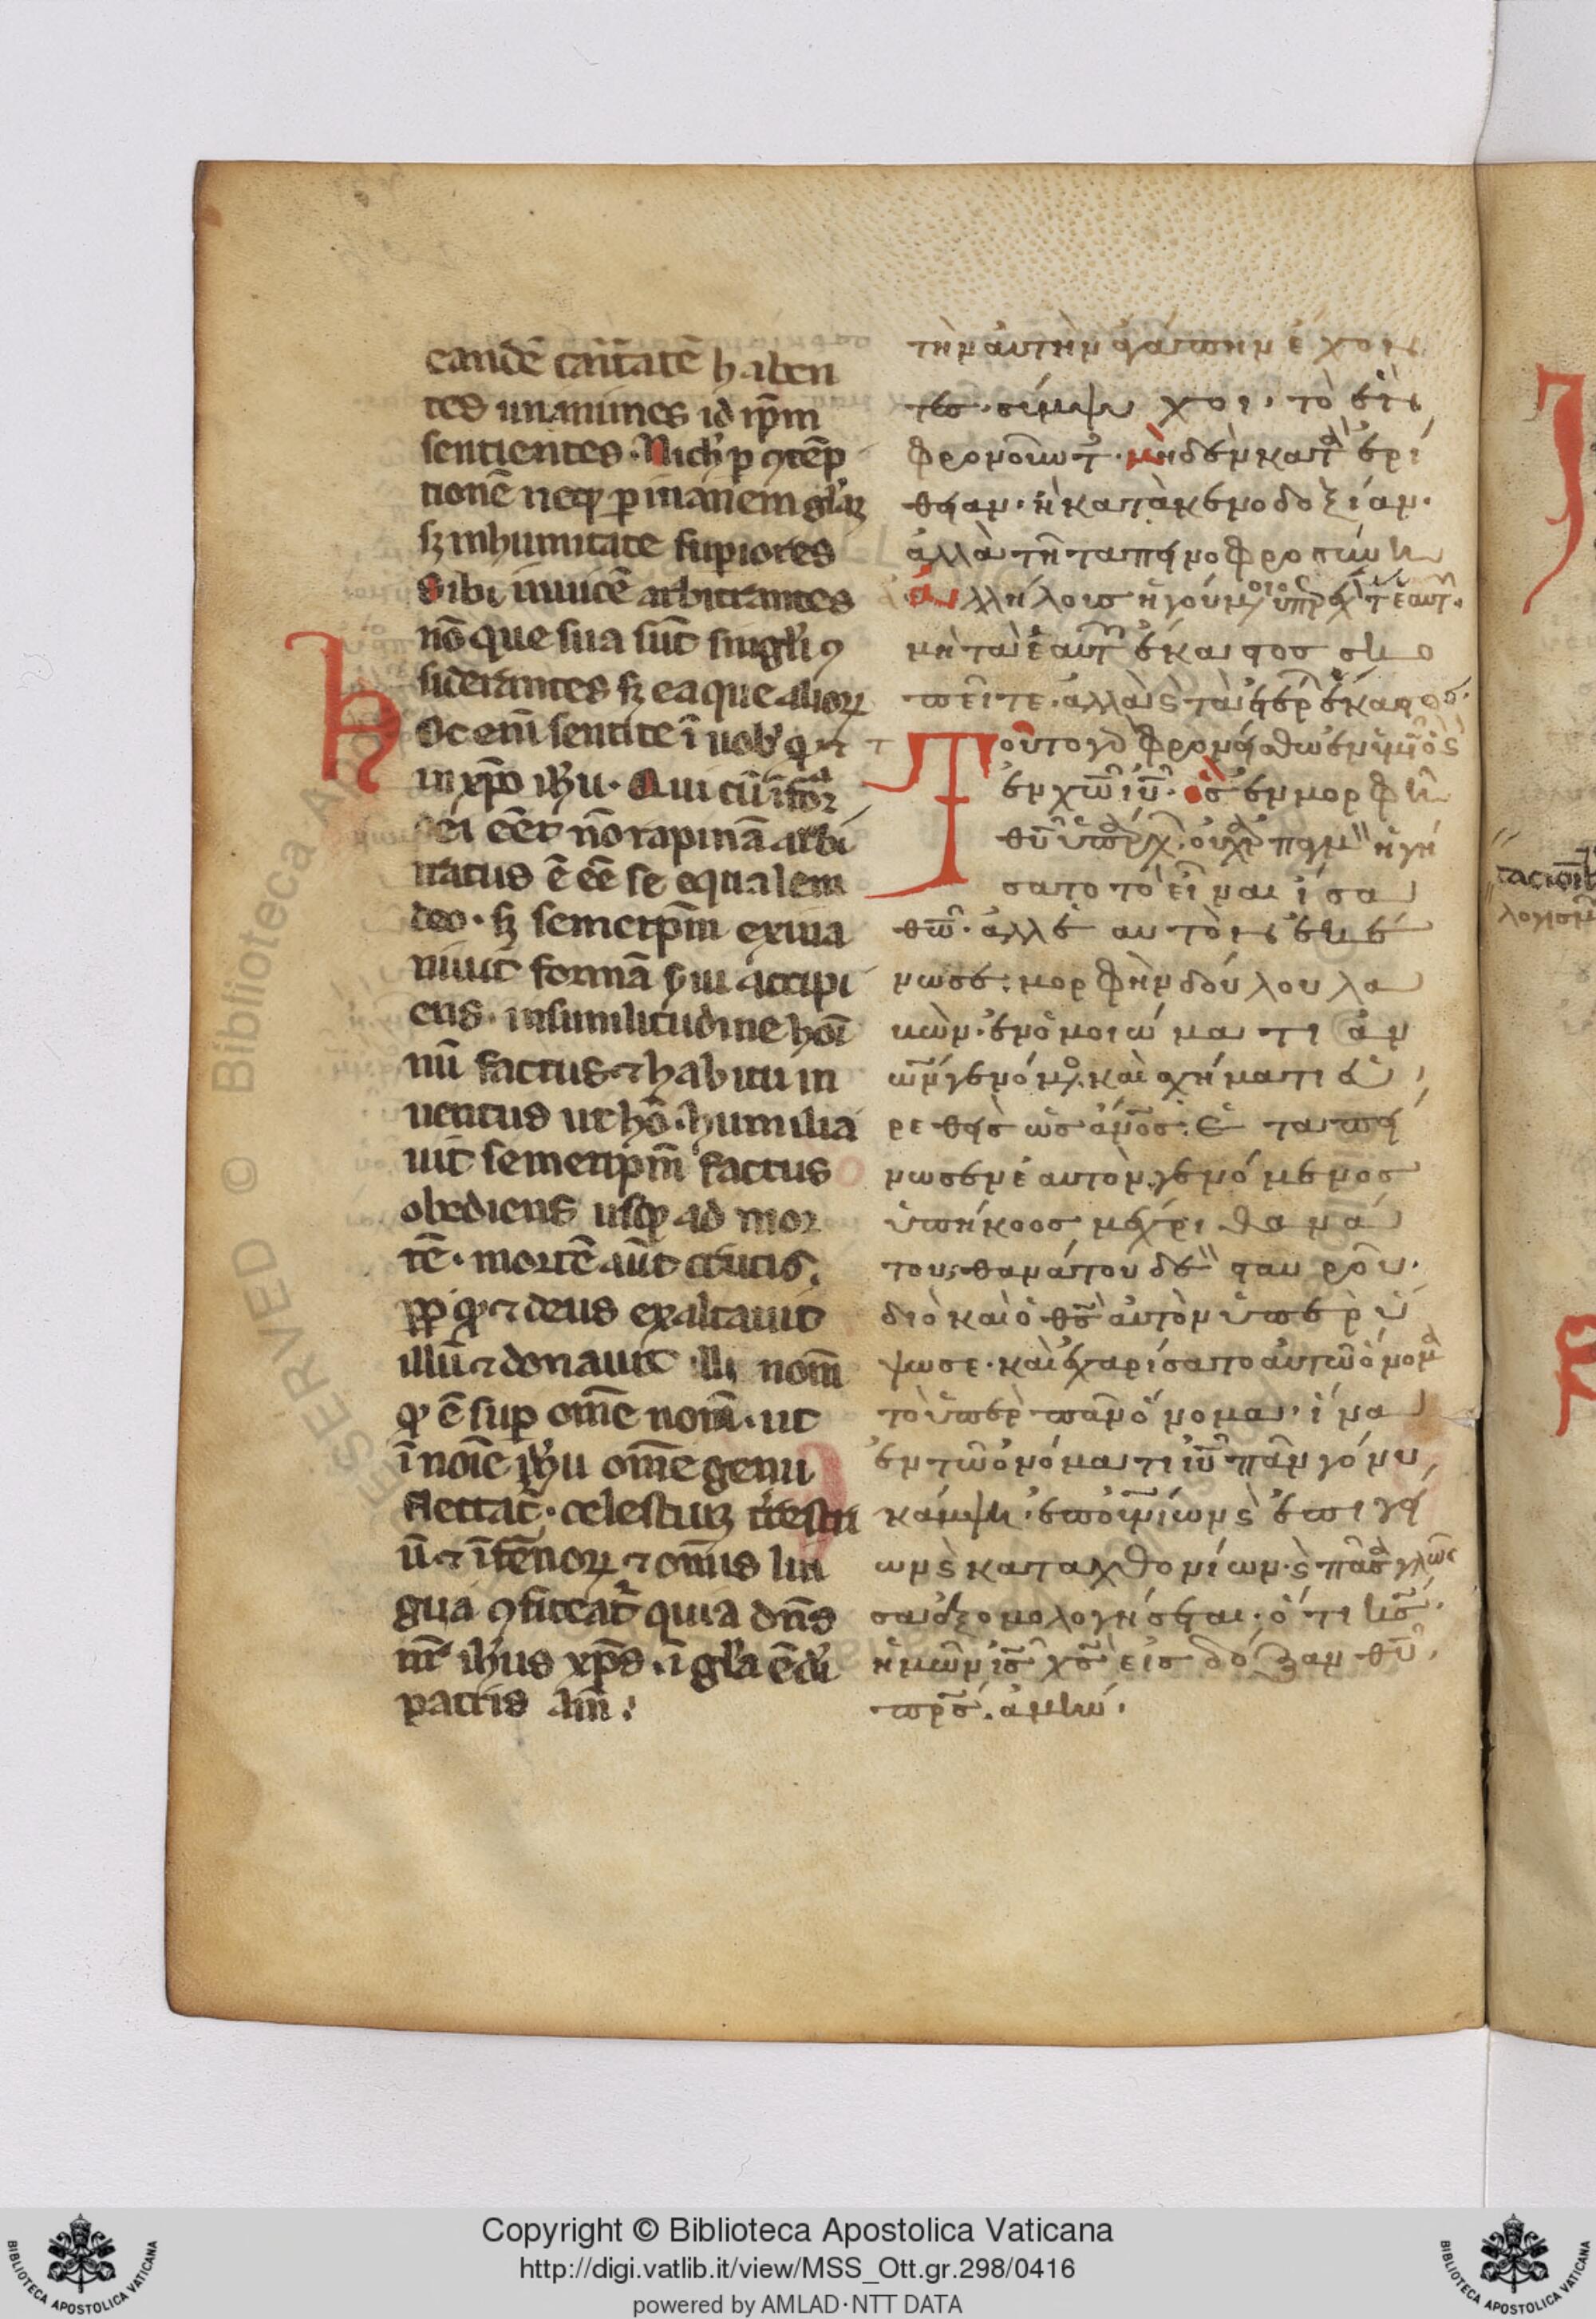 eandē caritatē haben
tes unanimes id ip̄m
sentientes. Nichͥ p ꝯtēp
tionē neqꝫ p inanem gl̄aꝫ
sꝫ inhumitate supiores
Sibi inuicē arbitrantes
nō que sua sūt singl̓i ꝯ
siderantes sꝫ ea que alioꝝ
hOc eni̅ sentite ī uob̓ qͦ ⁊
in xp̄o ih̅u. Qui cū ī for̄a
dei eēt nō rapinā arbi
tratus ē eē se equalem
deo. sꝫ semetip̄m exina
niuit formā s̓ui accipi
ens. insimilitudine hoī
nū factus ⁊ habitu in
uentus ut hō. humilia
uit semetip̄m factus
obediens usqꝫ ad mor
tē. mortē aūt crucis.
pp qꝫ ⁊ deus exaltauit
illū ⁊ donauit illi nom̄
qͦ ē sup om̄e nom̄. ut
ī noīe ih̅u om̄e genu
flectat̄. celestiuꝫ t̓restri
ū. ⁊ īfernoꝝ ⁊ om̄is lin
gua ꝯfiteat̄ quia dn̄s
nr̄ ih̅us xp̄s. ī gl̄a ē di
patris am̄.
τὴν ἀυτὴν ἀγάπην ἔχον
τες. σύμψυχοι. τὸ ἓν
φρονοῦντ̓. μὴδὲν κατ̓ ἐρί
θειαν. ἢ κατὰ κενοδοξίαν.
ἀλλὰ τῆ ταπεινοφροσύνη
ἀλλήλους ἡγούμ̓ οι ὑπερέχ̓ τ ἑαυτ̓.
μὴ τὰ ἑαυτ̓ ἕκαστος σκο
πεῖτε. ἀλλὰ ϗ τὰ ἑτέῤ ἕκαστος.
Τοῦτο γὰρ φρονείσθω ἐν ὑμῖν ὃ ϗ
ἐν χ̅ω ἰ̅υ. ὃς ἐν μορφῆ
θ̅υ ὑπάρχ̓. οὐχ ἁρπαγμ̓ ἡγή
σατο τὸ εἶναι ἴσα
θ̅ω. ἀλλ̓ ἑαυτὸν ἐκέ
νωσε. μορφὴν δούλου λα
βὼν. ἐν ὁμοιώματι ἀν
ω̅ν γενόμ̓. καὶ σχήματι εὑ
ρεθεὶς ὡς ἄν̅ος. Ἐταπεί
νωσεν ἑαυτὸν γενόμενος
ὑπήκοος μέχρι θανά
του. θανάτου δὲ σταυροῦ.
διὸ καὶ ὁ θ̅ς ἀυτὸν ὑπερύ
ψωσε. καὶ ἐχαρίσατο ἀυτῶ ὄνομα
τὸ ὑπὲρ πᾶν ὄνομα. ἵνα
ἐν τῶ ὀνόματι ἰ̅υ πᾶν γόνυ
κάμψη. ἐπουνίων ϗ ἐπιγεί
ων ϗ καταχθονίων. ϗ πᾶσα γλῶσ
σα ἐξομολογήσεται. ὅτι κ̅ς
ἡμῶν ἰ̅ς χ̅ς εἰς δόξαν θ̅υ
π̅ρς. ἀμήν.
λογισμ
Copyright © Biblioteca Apostolica Vaticana
http://digi.vatlib.it/view/MSS_Ott.gr.298/0416
powered by AMLAD·NTT DATA
BIBLIOTECA APOSTOLICA VATICANA
BIBLIOTECA APOSTOLICA VATICANA